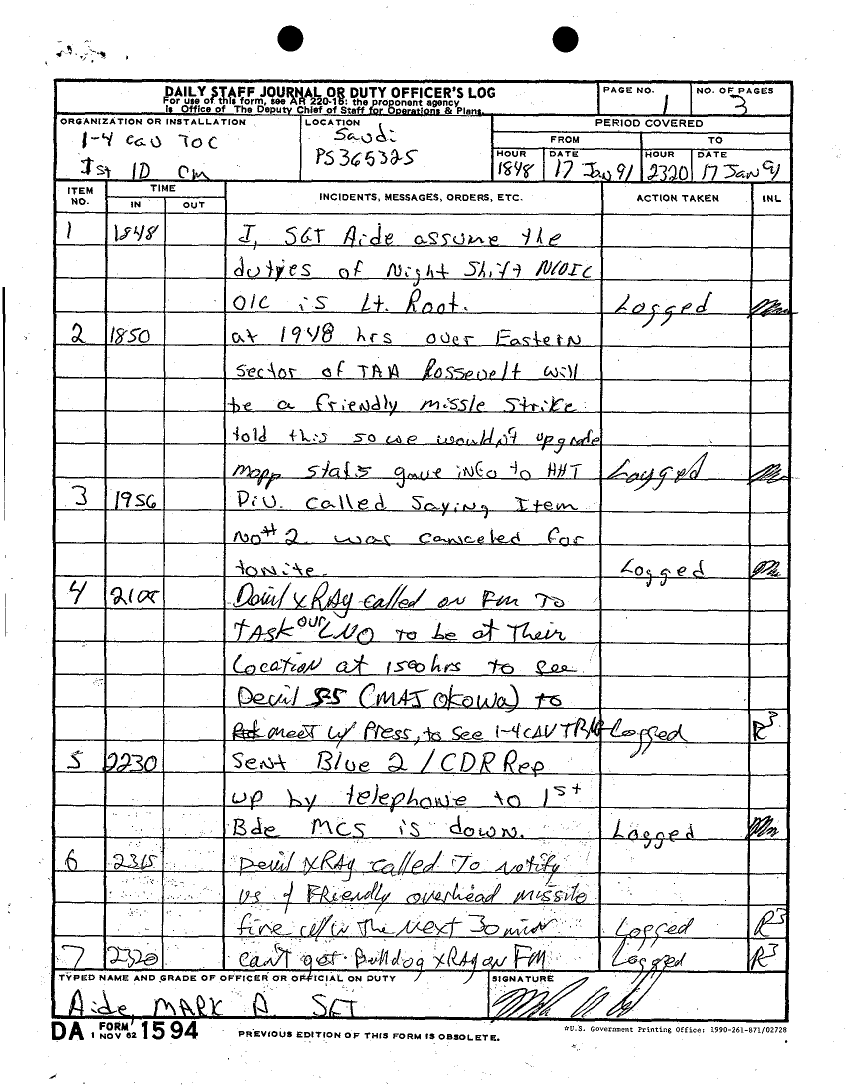 DAILY STAFF JOURNAL OR DUTY OFFICER'S LOG
For use of this form, see AR 220-15: the proponent agency
is Office of The Deputy Chief of Staff for Operations & Plans.
PAGE NO.
1
NO. OF PAGES
3
ORGANIZATION OR INSTALLATION
1-4 Cav TOC
1st ID CM
LOCATION
Saudi
PS365325
PERIOD COVERED
FROM TO
HOUR DATE HOUR DATE
1848 17 Jan 91 2320 17 Jan 91
ITEM NO. TIME INCIDENTS, MESSAGES, ORDERS, ETC. ACTION TAKEN INL
IN OUT
1 1848 I, SGT Aide assume the
duties of Night Shift NCOIC
OIC is Lt. Root. Logged
2 1850 at 1948 hrs over Eastern
sector of TAA Rossevelt will
be a friendly missle strike
told this so we wouldn't upgrade
mopp stats gave info to HHT Logged
3 1956 Div. called Saying Item
No# 2 was canceled for
tonite. Logged
4 Devil XRAy called on FM To
TAsk our LNO To be at Their
Location at 1500hrs to see
Devil S-5 (MAJ OKOWA) to
meet w/ Press, to See 1-4 CAV Logged R3
5 2230 Sent Blue 2 / CDR Rep
up by telephone to 1st
Bde MCS is down. Logged
6 2315 Devil XRAy called To notify
us of FRiendly overhead missile
fire w/in The Next 30 min Logged R3
7 2320 can't get Bulldog XRAy on FM Logged R3
TYPED NAME AND GRADE OF OFFICER OR OFFICIAL ON DUTY
Aide, MARK A. SGT
SIGNATURE
DA FORM 1 NOV 62 1594
PREVIOUS EDITION OF THIS FORM IS OBSOLETE.
☆U.S. Government Printing Office: 1990-261-871/02728